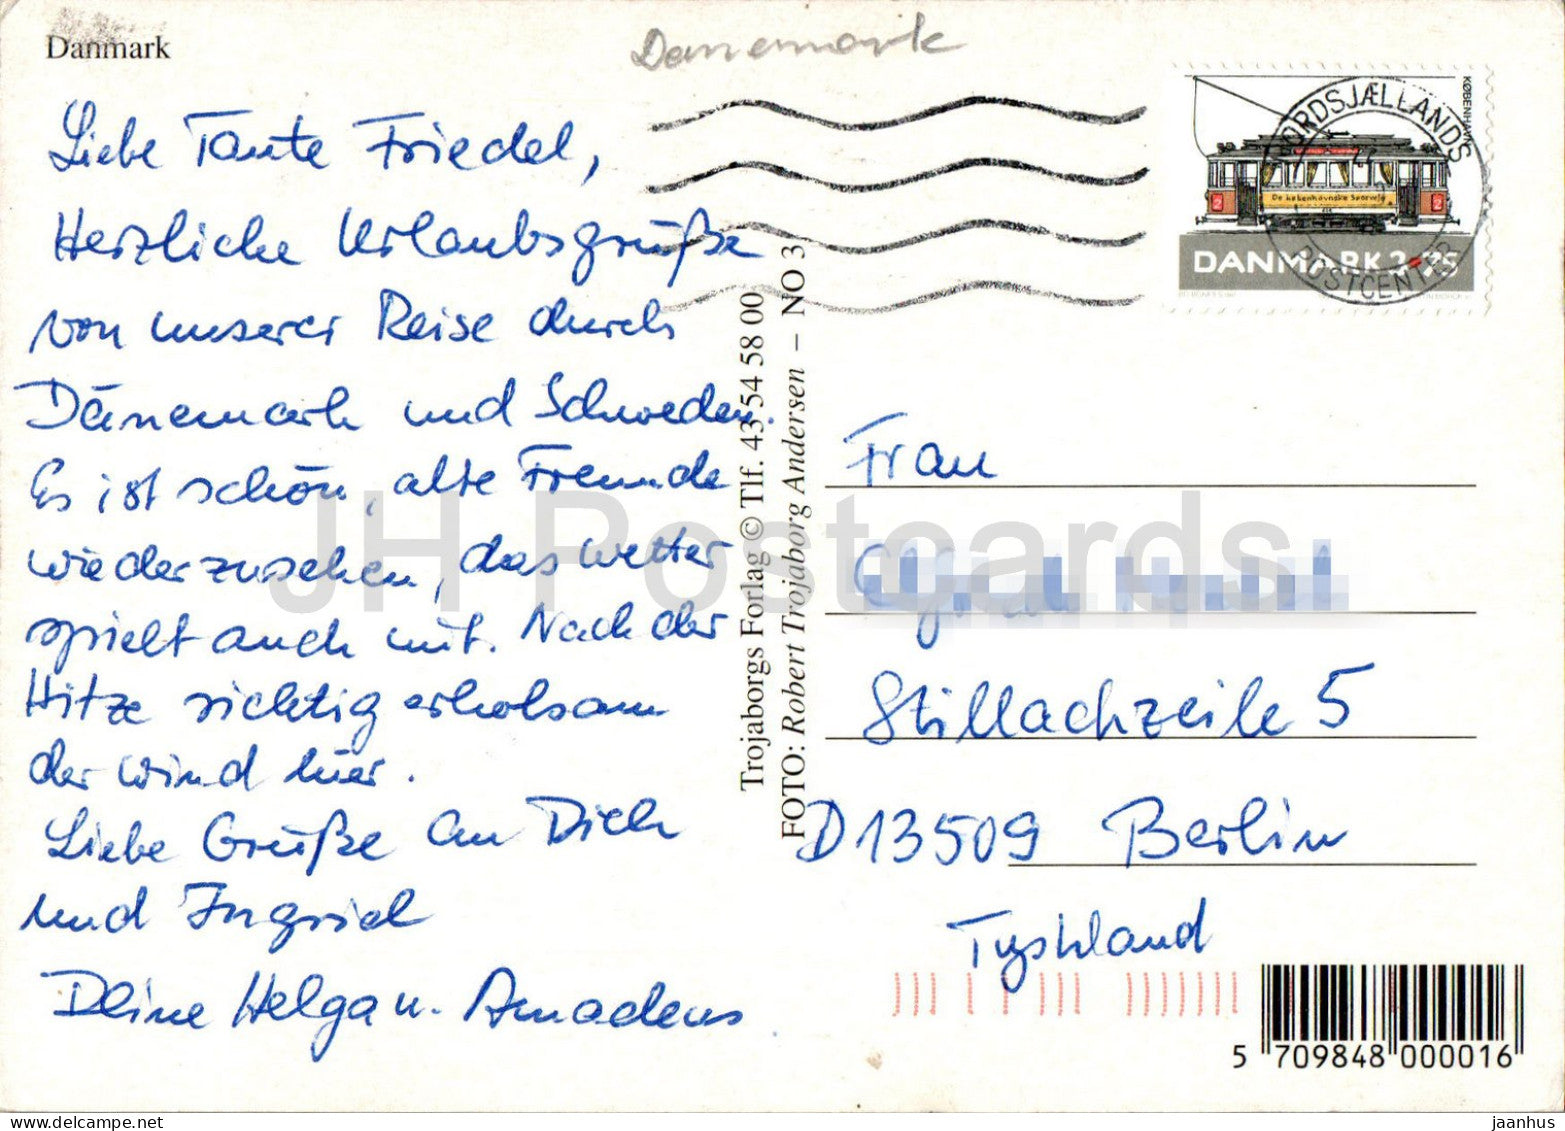 Danmark
Danemark
Liebe Tante Friedel,
Herzliche Urlaubsgrüße
von unserer Reise durch
Dänemark und Schweden.
Es ist schön, alte Freunde
wiederzusehen, das Wetter
spielt auch mit. Nach der
Hitze richtig erholsam
der Wind hier.
Liebe Grüße an Dich
und Ingrid
Deine Helga u. Amadeus
Trojaborgs Forlag © Tlf. 43 54 58 00
FOTO: Robert Trojaborg Andersen – NO 3
KØBENHAVN
NORDSJÆLLANDS
POSTCENTER
De københavnske Sporveje
2
2
DANMARK 2.75
Frau
Stillachzeile 5
D 13509 Berlin
Tyskland
5 709848 000016
JH Postcards
www.delcampe.net
jaanhus